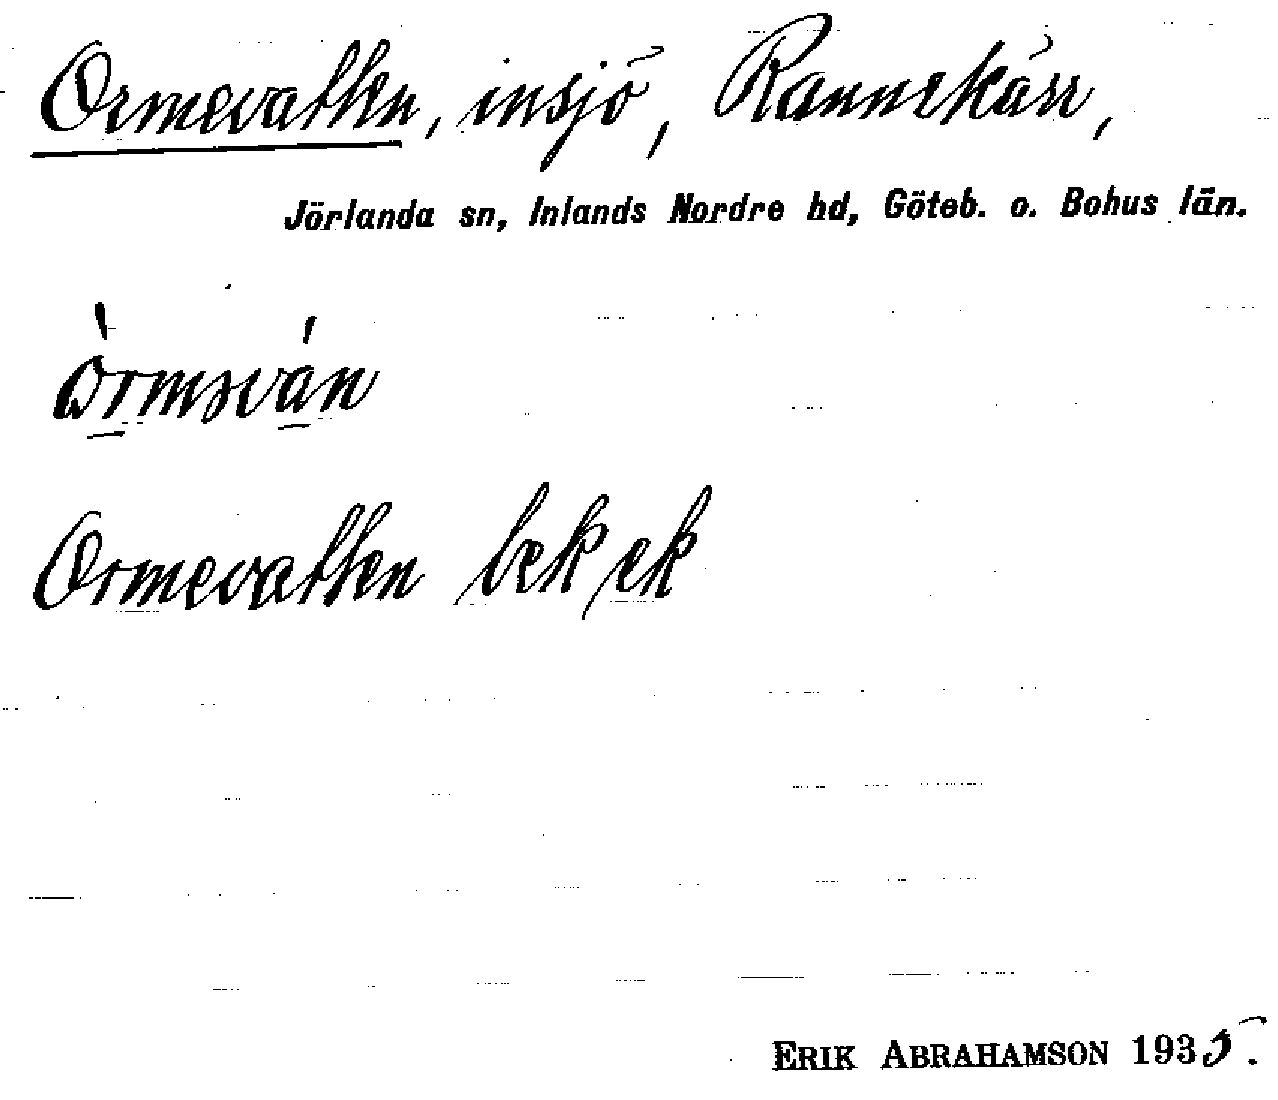 Ormevatten, insjö, Rannekärr,
Jörlanda sn, Inlands Nordre hd, Göteb. o. Bohus län.
Ormevatten bek ek
ERIK ABRAHAMSON 1935.